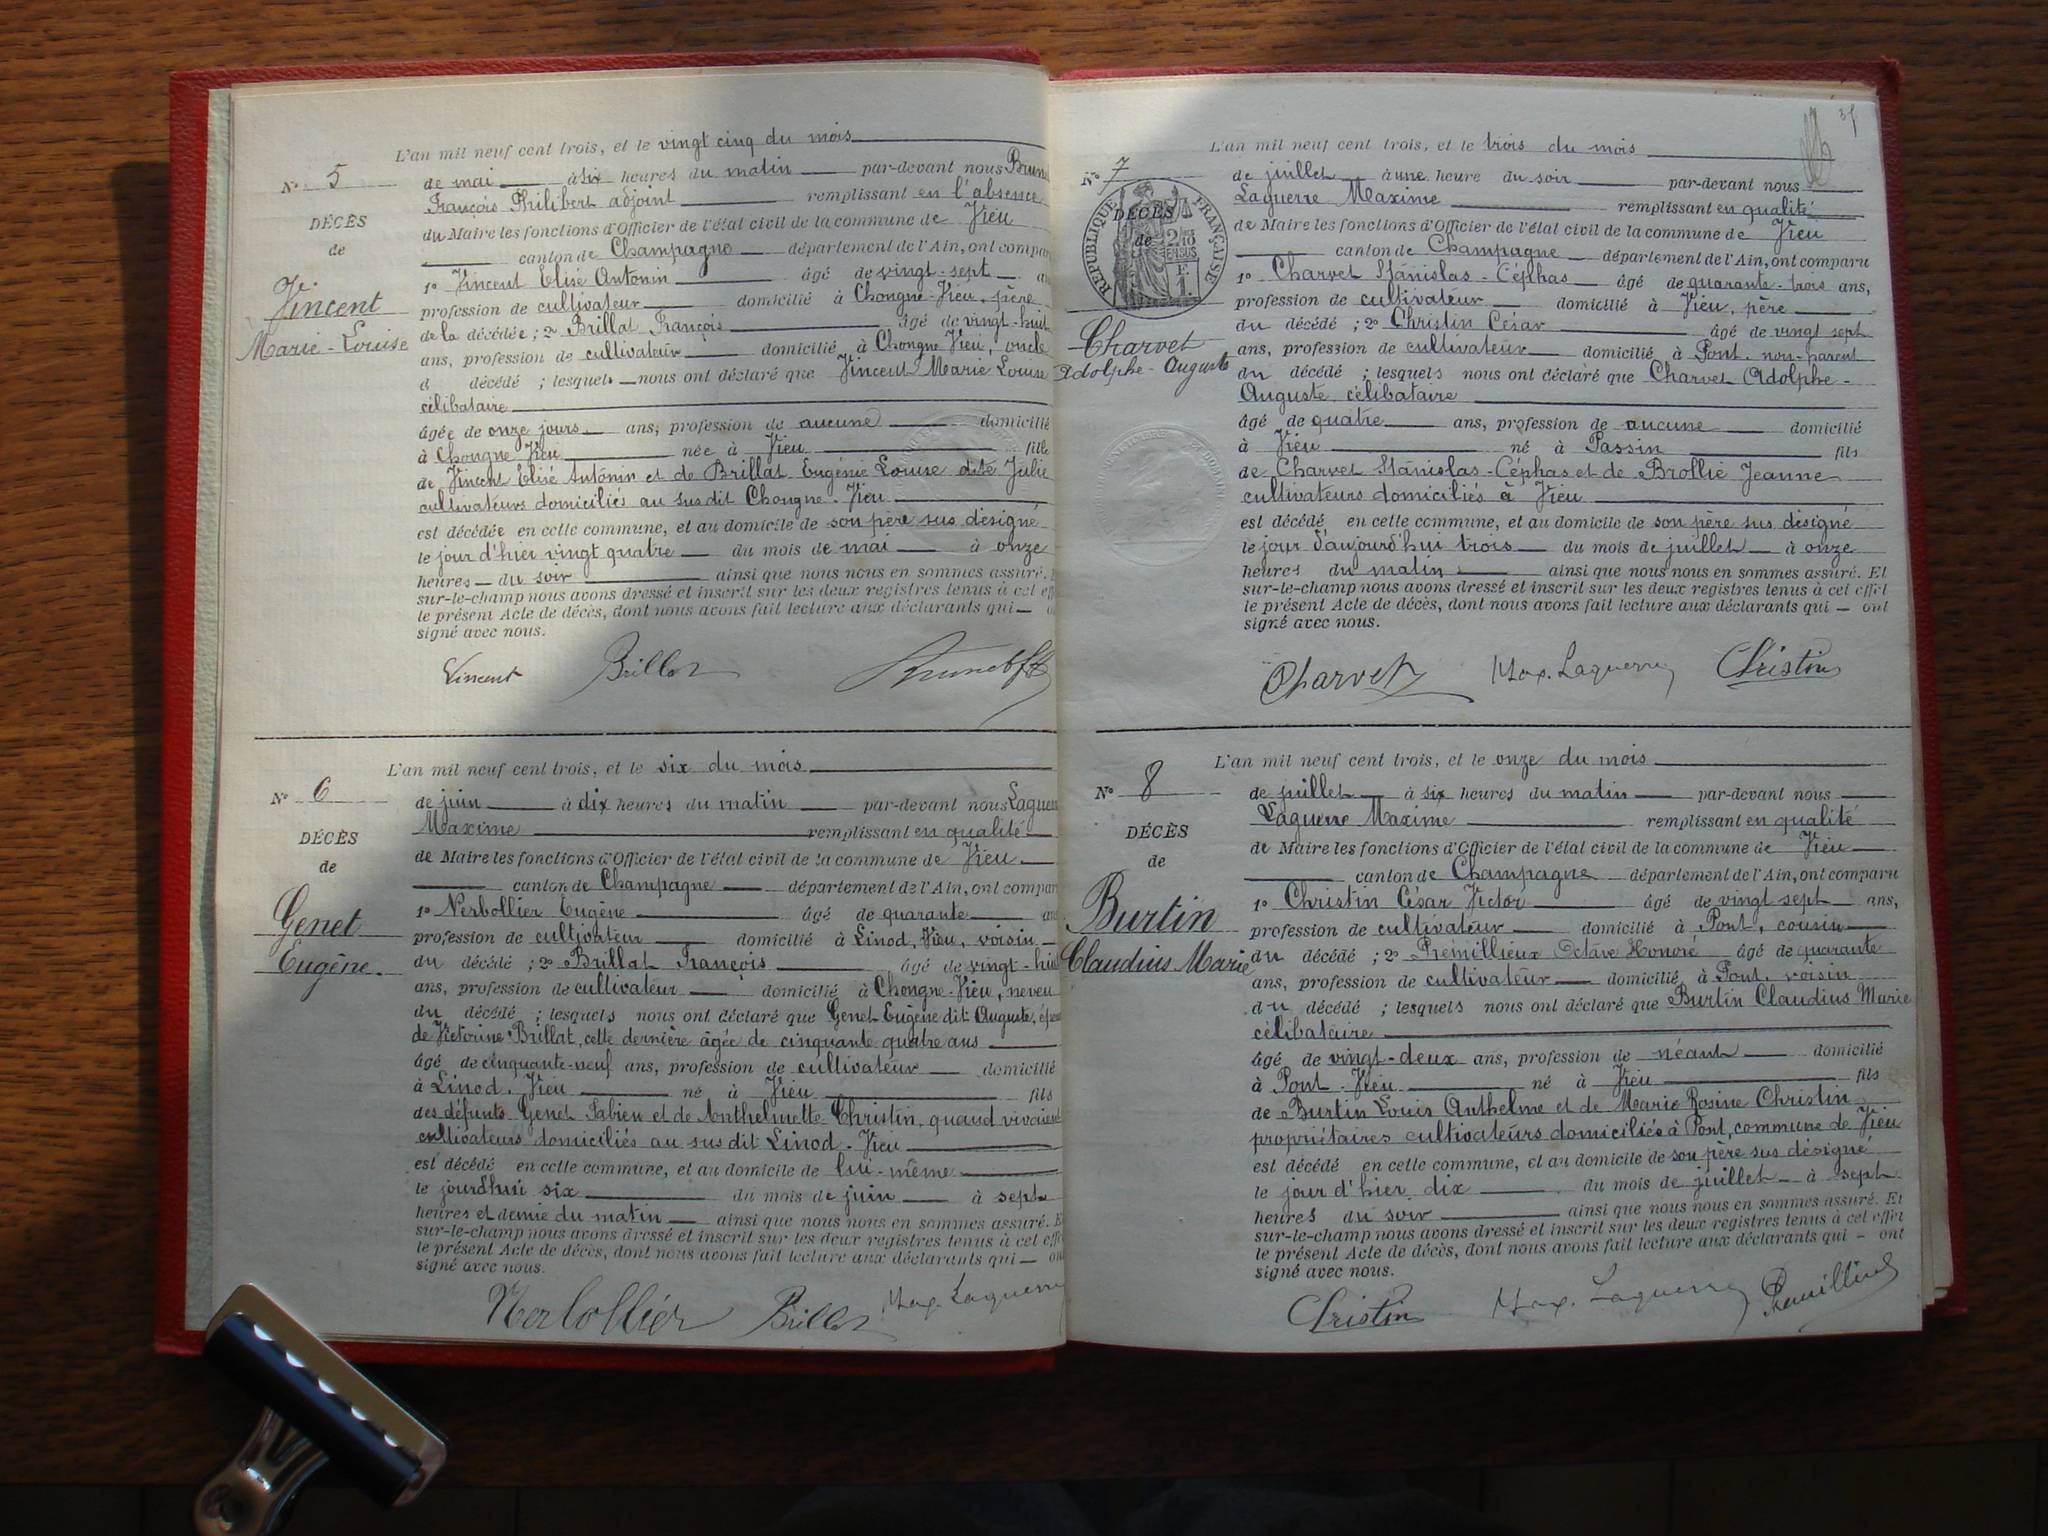 L'an mil neuf cent trois, et le vingt cinq du mois
N° 5 de mai à six heures du matin par-devant nous
François Philibert adjoint remplissant en l'absence
DÉCÈS
du Maire les fonctions d'Officier de l'état civil de la commune de Vieu
de
canton de Champagne département de l'Ain, ont compar
1° Vincent Elisé Antonin âgé de vingt-sept
Vincent
profession de cultivateur domicilié à Chongne-Vieu, père
Marie-Louise
de la décédée ; 2° Brillat François âgé de vingt-huit
ans, profession de cultivateur domicilié à Chongne-Vieu, oncle
d décédé ; lesquels nous ont déclaré que Vincent Marie Louise
célibataire
âgée de onze jours ans, profession de aucune domicilié
à Chongne Vieu née à Vieu fille
de Vincent Elisé Antonin et de Brillat Eugénie Louise dite Julie
cultivateurs domiciliés au susdit Chongne-Vieu
est décédée en cette commune, et au domicile de son père sus désigné
le jour d'hier vingt quatre du mois de mai à onze
heures du soir ainsi que nous nous en sommes assuré.
sur-le-champ nous avons dressé et inscrit sur les deux registres tenus à cet eff
le présent Acte de décès, dont nous avons fait lecture aux déclarants qui
signé avec nous.
Vincent Brillat
L'an mil neuf cent trois, et le six du mois
N° 6 de juin à dix heures du matin par-devant nous Laguerr
Maxime remplissant en qualité
DÉCÈS
de Maire les fonctions d'Officier de l'état civil de la commune de Vieu
de
canton de Champagne département de l'Ain, ont compar
Genet
1° Nerbollier Eugène âgé de quarante
profession de cultivateur domicilié à Linod, Vieu, voisin
Eugène.
du décédé ; 2° Brillat François âgé de vingt-huit
ans, profession de cultivateur domicilié à Chongne-Vieu, neveu
du décédé ; lesquels nous ont déclaré que Genet Eugène dit Auguste, époux
de Victorine Brillat, cette dernière âgée de cinquante quatre ans
âgé de cinquante-neuf ans, profession de cultivateur domicilié
à Linod. Vieu né à Vieu fils
des défunts Genet Fabien et de Anthelmette Christin, quand vivaient
cultivateurs domiciliés au susdit Linod-Vieu
est décédé en cette commune, et au domicile de lui-même
le jourdhui six du mois de juin à sept
heures et demie du matin ainsi que nous nous en sommes assuré. E
sur-le-champ nous avons dressé et inscrit sur les deux registres tenus à cet effe
le présent Acte de décès, dont nous avons fait lecture aux déclarants qui on
signé avec nous.
Nerbollier Brillat Max. Laguerre
L'an mil neuf cent trois, et le trois du mois
N° 7 de juillet à une heure du soir par-devant nous
Laguerre Maxime remplissant en qualité
RÉPUBLIQUE FRANÇAISE
DÉCÈS
de Maire les fonctions d'Officier de l'état civil de la commune de Vieu
de
canton de Champagne département de l'Ain, ont comparu
1° Charvet Stanislas-Céphas âgé de quarante-trois ans,
profession de cultivateur domicilié à Vieu, père
Charvet
du décédé ; 2° Christin César âgé de vingt sept
Adolphe-Auguste
ans, profession de cultivateur domicilié à Pont, non-parent
du décédé ; lesquels nous ont déclaré que Charvet Adolphe-
Auguste, célibataire
âgé de quatre ans, profession de aucune domicilié
à Vieu né à Passin fils
de Charvet Stanislas-Céphas et de Brollié Jeanne
cultivateurs domiciliés à Vieu
est décédé en cette commune, et au domicile de son père sus désigné
le jour d'aujourd'hui trois du mois de juillet à onze
heures du matin ainsi que nous nous en sommes assuré. Et
sur-le-champ nous avons dressé et inscrit sur les deux registres tenus à cet effet
le présent Acte de décès, dont nous avons fait lecture aux déclarants qui ont
signé avec nous.
Charvet Max. Laguerre Christin
L'an mil neuf cent trois, et le onze du mois
N° 8 de juillet à six heures du matin par-devant nous
Laguerre Maxime remplissant en qualité
DÉCÈS
de Maire les fonctions d'Officier de l'état civil de la commune de Vieu
de
canton de Champagne département de l'Ain, ont comparu
Burtin
1° Christin César Victor âgé de vingt sept ans,
profession de cultivateur domicilié à Pont, cousin
Claudius Marie
du décédé ; 2° Prémillieux Octave Honoré âgé de quarante
ans, profession de cultivateur domicilié à Pont, voisin
du décédé ; lesquels nous ont déclaré que Burtin Claudius Marie
célibataire
âgé de vingt-deux ans, profession de néant domicilié
à Pont-Vieu né à Vieu fils
de Burtin Louis Anthelme et de Marie Rosine Christin
propriétaires cultivateurs domiciliés à Pont, commune de Vieu
est décédé en cette commune, et au domicile de son père sus désigné
le jour d'hier dix du mois de juillet à sept
heures du soir ainsi que nous nous en sommes assuré. Et
sur-le-champ nous avons dressé et inscrit sur les deux registres tenus à cet effet
le présent Acte de décès, dont nous avons fait lecture aux déclarants qui ont
signé avec nous.
Christin Max. Laguerre